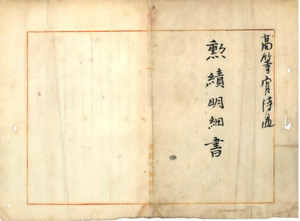 高等官待遇
勲績明細書